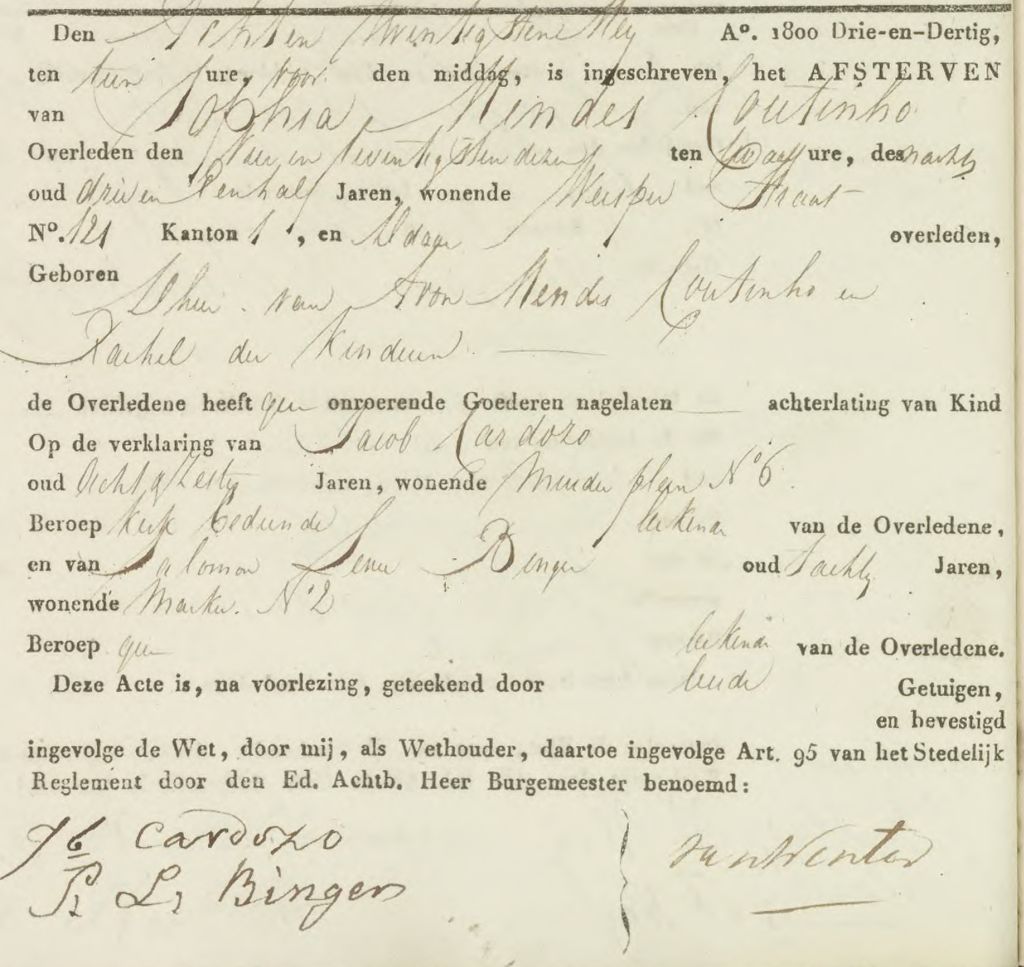 Den Acht en twintigsten Mey A°. 1800 Drie-en-Dertig,
ten tien ure, voor den middag, is ingeschreven, het AFSTERVEN
van Sophia Mendes Coutinho
Overleden den Zes en twentigsten dezer ten twaalf ure, des nachts
oud drie en een half Jaren, wonende Weesper Straat
N°. 121 Kanton 1, en Aldaar overleden,
Geboren Alhier. van Aron Mendes Coutinho en
Rachel der Kinderen
de Overledene heeft geen onroerende Goederen nagelaten achterlating van Kind
Op de verklaring van Jacob Cardozo
oud Acht & Zestig Jaren, wonende Muider plein N° 6.
Beroep Kerk bediende bekende van de Overledene,
en van Salomon Levie Binger oud Tachtig Jaren,
wonende Marken. N° 2
Beroep geen bekende van de Overledene.
Deze Acte is, na voorlezing, geteekend door beide Getuigen,
en bevestigd
ingevolge de Wet, door mij, als Wethouder, daartoe ingevolge Art. 95 van het Stedelijk
Reglement door den Ed. Achtb. Heer Burgemeester benoemd:
Cardozo
L Binger
van Winter